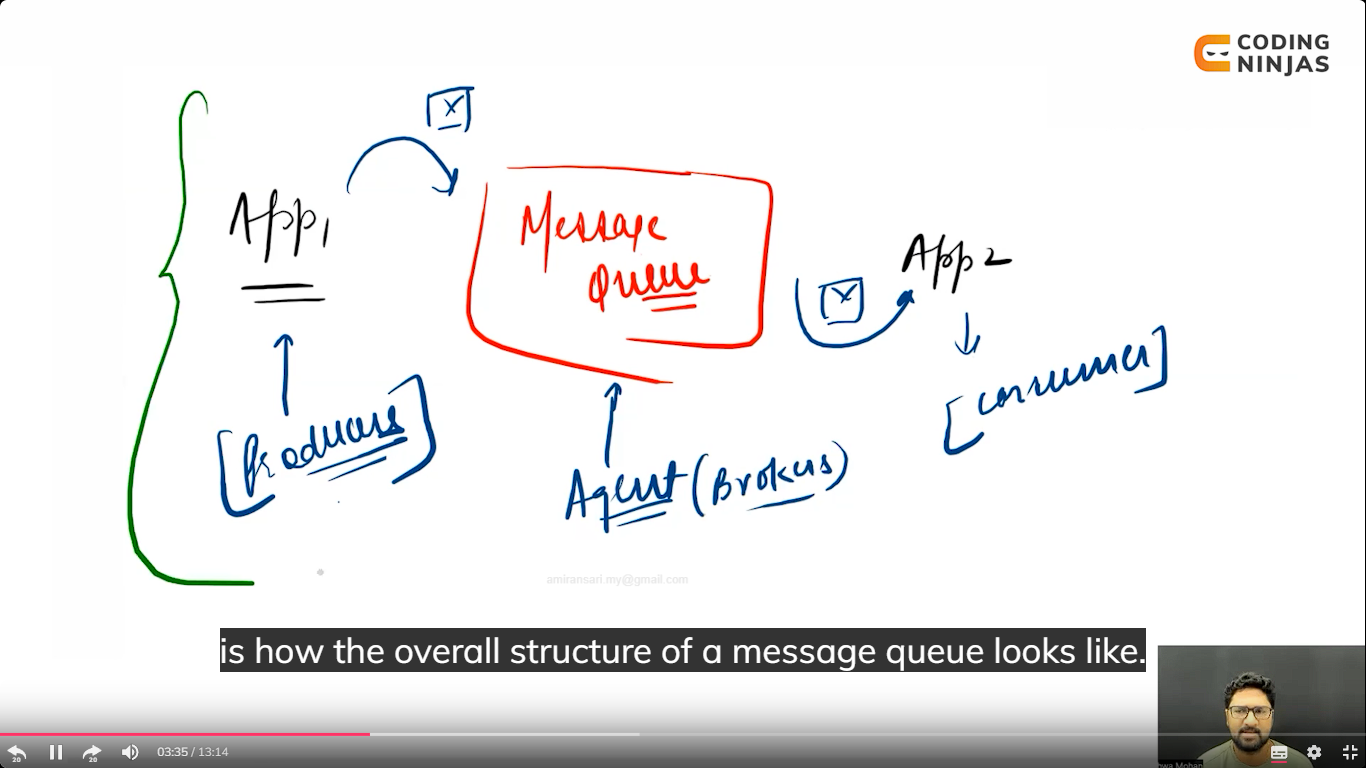 CODING
NINJAS
x
App1
Message
Queue
App2
x
[Producers]
[consumer]
Agent (Brokers)
amiransari.my@gmail.com
is how the overall structure of a message queue looks like.
20
20
03:35 / 13:14